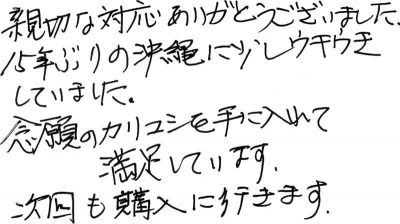 親切な対応ありがとうございました.
15年ぶりの沖縄に少しウキウキ
していました。
念願のカリユシを手に入れて
満足しています.
次回も購入に行きます.